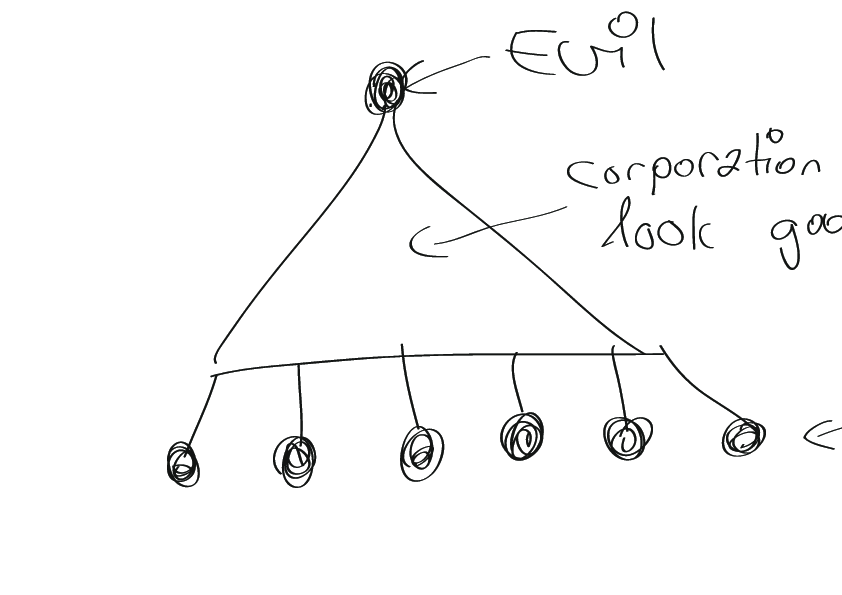 Evil
corporation
look goo